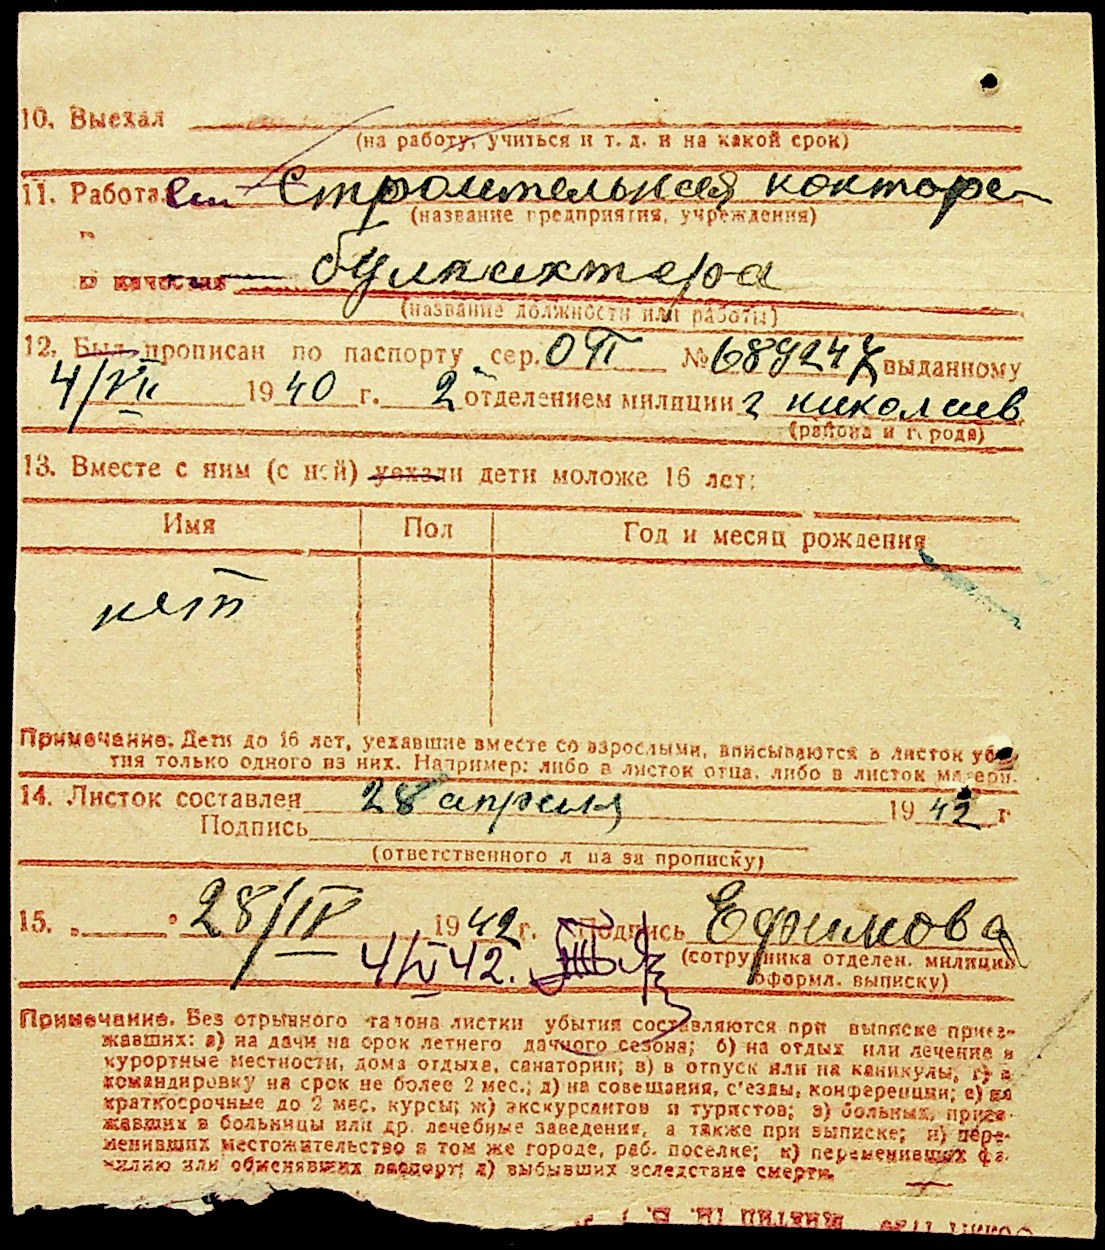 10. Выехал
(на работу, учиться и т. д. и на какой срок)
11. Работал Строительная контора
(название предприятия, учреждения)
в качестве бухгалтера
(название должности или работы)
12. Был прописан по паспорту сер. ОП № 689247 выданному
4/VII 1940 г. 2 отделением милиции г Николаев
(района и города)
13. Вместе с ним (с ней) уехали дети моложе 16 лет:
Имя Пол Год и месяц рождения
нет
Примечание. Дети до 16 лет, уехавшие вместе со взрослыми, вписываются в листок убы-
тия только одного из них. Например: либо в листок отца, либо в листок матери.
14. Листок составлен 28 апреля 1942 г
Подпись
(ответственного лица за прописку)
15. „ “ 28/IV 1942 г. Подпись Ефимова
4/V 42. (сотрудника отделен. милиции
оформл. выписку)
Примечание. Без отрывного талона листки убытия составляются при выписке приез-
жавших: а) на дачи на срок летнего дачного сезона; б) на отдых или лечение в
курортные местности, дома отдыха, санатории; в) в отпуск или на каникулы, г) в
командировку на срок не более 2 мес.; д) на совещания, съезды, конференции; е) на
краткосрочные до 2 мес. курсы; ж) экскурсантов и туристов; з) больных, приез-
жавших в больницы или др. лечебные заведения, а также при выписке; и) пере-
менивших местожительство в том же городе, раб. поселке; к) переменивших фа-
милию или обменявших паспорт; л) выбывших вследствие смерти.